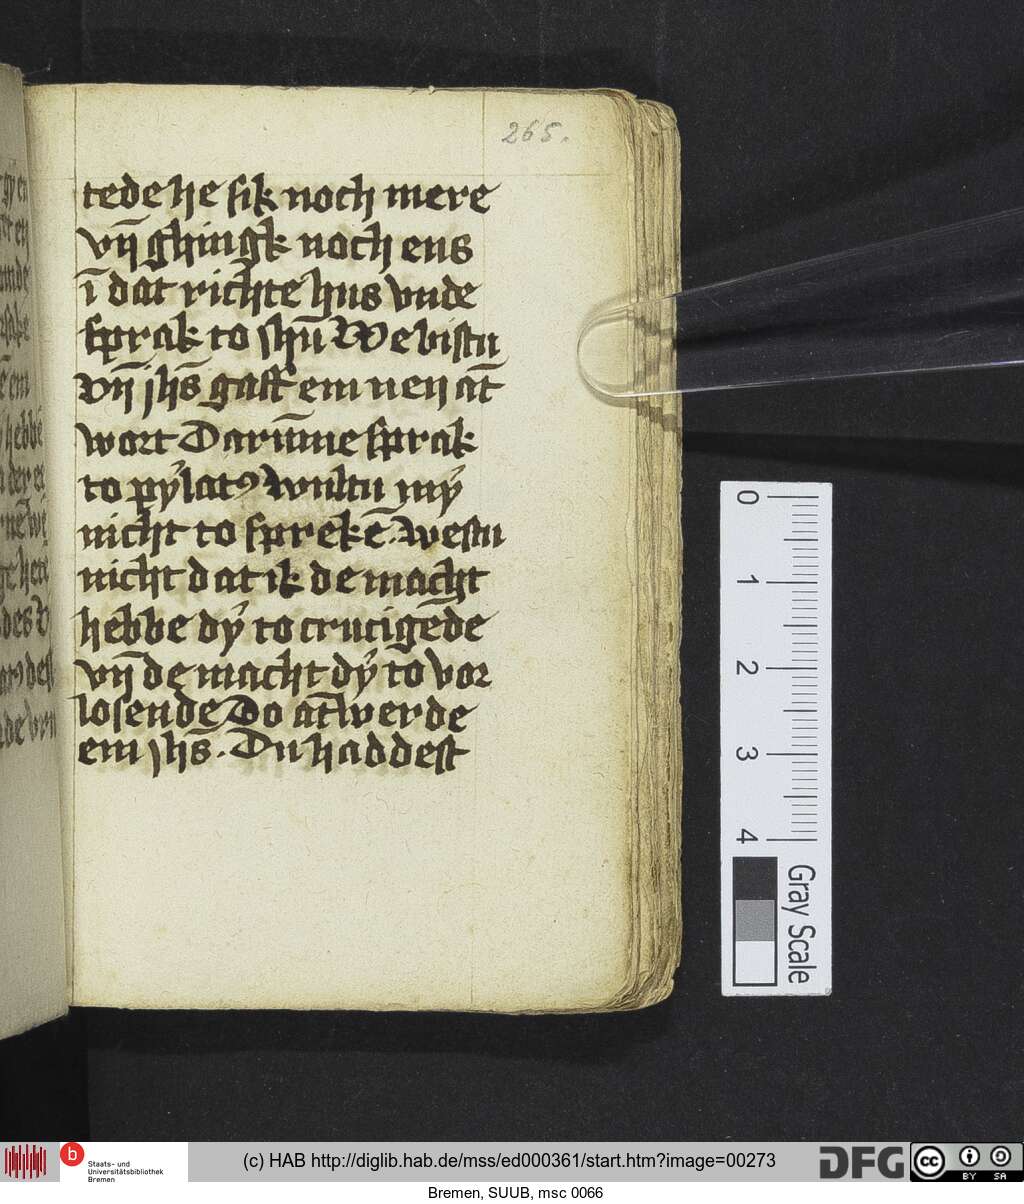 265.
tede he sik noch mere
vn̄ ghingk noch ens
ī dat richte hus vnde
sprak to jhū We bistu
vn̄ jhs̄ gaff em nen āt
wort Darūme sprak
to pylatꝰ wultu my
nicht to sprekē. westu
nicht dat ik de macht
hebbe dy to crucigēde
vn̄ de macht dy to vor
losende Do āt werde
em jhs̄. Du haddest
0
1
2
3
4
Gray Scale
b
Staats- und
Universitätsbibliothek
Bremen
(c) HAB http://diglib.hab.de/mss/ed000361/start.htm?image=00273
DFG
cc
BY SA
Bremen, SUUB, msc 0066